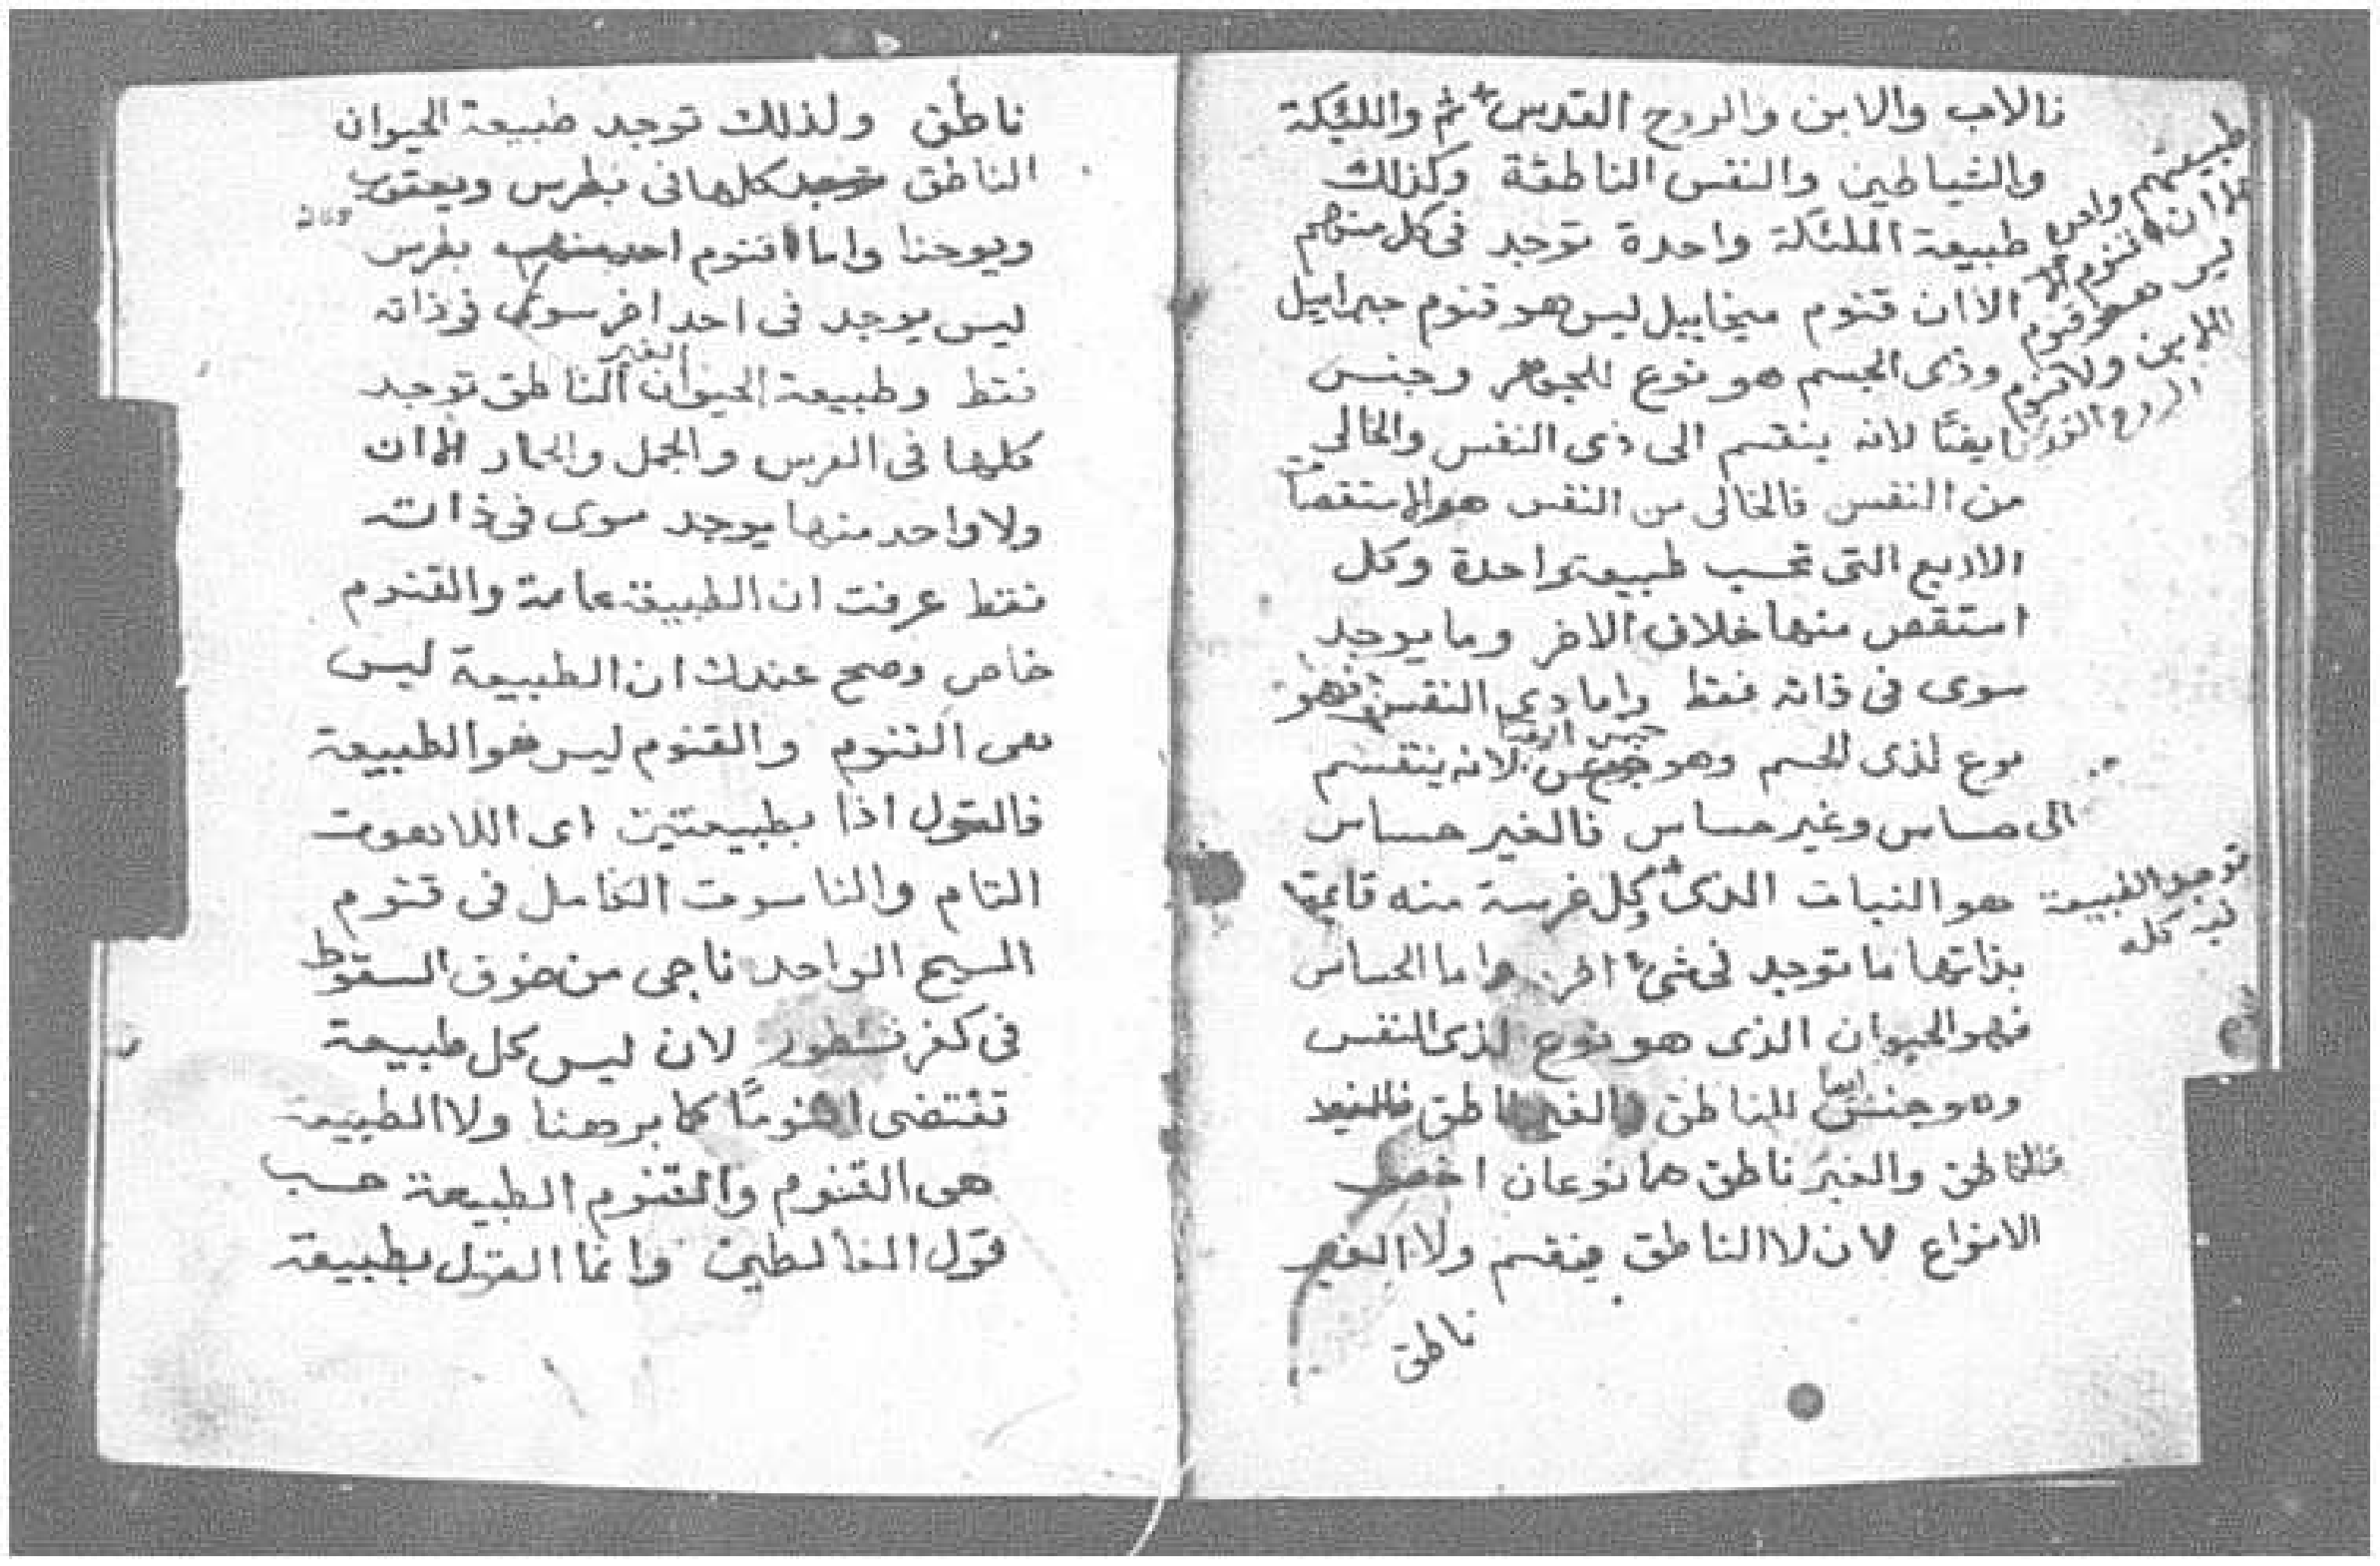 فالاب والابن والروح القدس ثم والملئكة
والشياطين والنفس الناطقة وكذلك
طبيعة الملئكة واحدة توجد فى كل منهم
الا ان قنوم ميخاييل ليس هو قنوم جبراييل
وذى الجسم هو نوع للجوهر وجنس
ايضًا لانه ينقسم الى ذى النفس والخالى
من النفس فالخالى من النفس هو الاستقصات
الاربع التى تحسب طبيعة واحدة وكل
استقص منها خلاف الاخر وما يوجد
سوى فى ذاته فقط واما دى النفس فهو
نوع لذى الجسم وهو جنس ايضا لانه ينقسم
الى حساس وغير حساس فالغير حساس
هو النبات الذى وكل غرسة منه قايمة
بذاتها ما توجد فى شئ اخر واما الحساس
فهو الحيوان الذى هو نوع لذى النفس
وهو جنس ايضا للناطق والغير ناطق
فالناطق والغير ناطق هما نوعان اخص
الانواع لان لا الناطق ينقسم ولا الغير
ناطق
طبيعتهم واحدة
الا ان قنوم الاب
ليس هو قنوم
الابن ولا قنوم
الروح القدس
توجد الطبيعة
فيه كله
ناطق ولذلك توجد طبيعة الحيوان
الناطق توجد كلها فى بطرس ويعقوب
ويوحنا واما اقنوم احد منهم بطرس
ليس يوجد فى احد اخر سوى فى ذاته
فقط وطبيعة الحيوان الغير الناطق توجد
كلها فى الفرس والجمل والحمار الا ان
ولا واحد منها يوجد سوى فى ذاته
فقط عرفت ان الطبيعة عامة والقنوم
خاص وصح عندك ان الطبيعة ليس
هى القنوم والقنوم ليس هو الطبيعة
فالقول اذا بطبيعتين اى اللاهوت
التام والناسوت الكامل فى قنوم
المسيح الواحد ناجى من خوف السقوط
فى كفر نسطور لان ليس كل طبيعة
تقتضى اقنومًا كما برهنا ولا الطبيعة
هى القنوم والقنوم الطبيعة حسب
قول الغالطين وانما القول بطبيعة